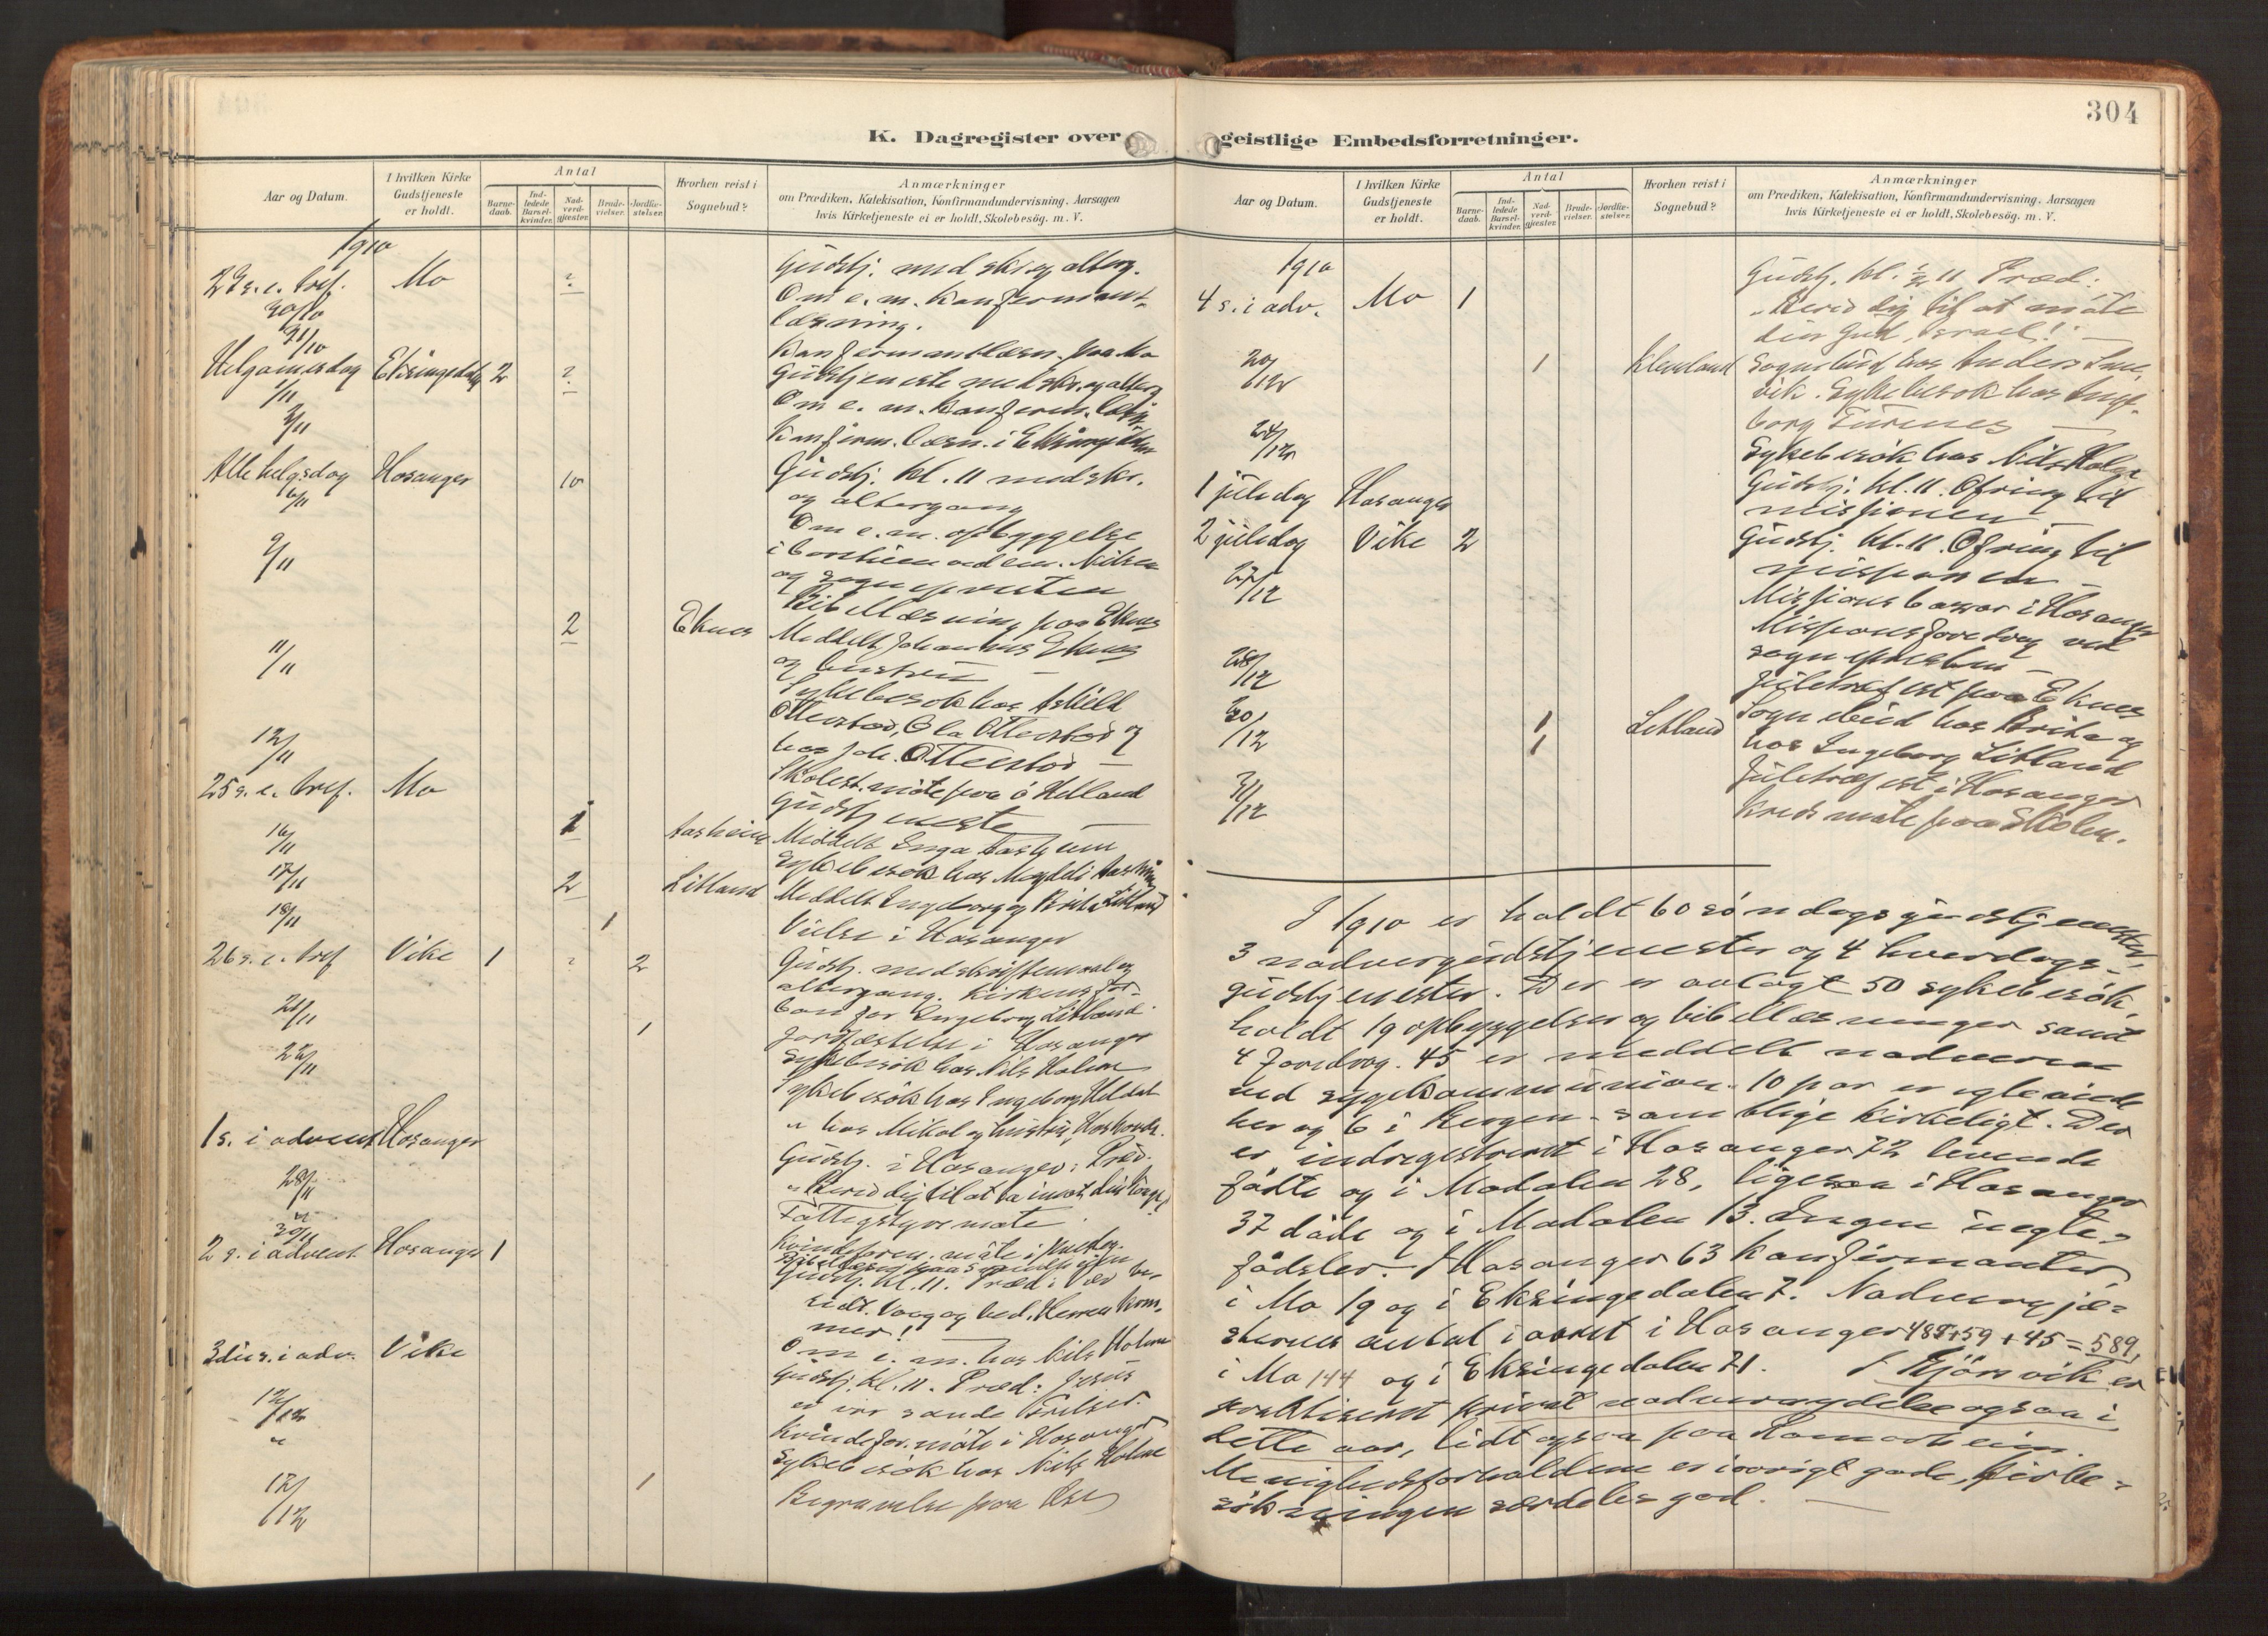 304
K. Dagregister over geistlige Embedsforretninger.
Aar og Datum.
I hvilken Kirke Gudstjeneste er holdt.
Antal
Barne-daab.
Ind-ledede Barsel-kvinder.
Nad-verd-gjester.
Brude-vielser.
Jordfæ-stelser.
Hvorhen reist i Sognebud?
Anmærkninger
om Prædiken, Katekisation, Konfirmandundervisning. Aarsagen
hvis Kirketjeneste ei er holdt, Skolebesøg. m. V.
1910
Gudstj. med skr. og alterg.
Mo
30/10
Om e. m. konfirmant-
læsning.
31/10
Konfirmantlæsn. paa Mo
Helgamesdag Eksingedal 2
Gudstjeneste med skr. og alterg
1/11
Om e. m. konfirm. læsn.
Konfirm. læsn. i Eksingedalen
Alle helgsdag Hosanger 10 Gudstj. kl. 11 med skr.
6/11 og altergang
Om e. m. opbyggelse
9/11
og sognepresten
Bibellæsning paa Eknes
2 Eknes Meddelt Johannes Eknes
11/11 og hustru
Sykebesøk hos
Otterstad, Ola Otterstad og
12/11 hos Joh. Otterstad
Skolest. møte paa ö Helland
25 s. e. tref. Mo Gudstjeneste
16/11 1 Aasheim Meddelt Inga Aasheim
Sykebesøk hos
17/11 2 Litland Meddelt Ingeborg og Brita Litland
18/11 1 Vielse i Hosanger
26 s. e. tref Vike 1 2 Gudstj. med skriftemaal og
altergang. Kirkens for-
bøn for Ingeborg Litland
21/11 1 Jordfæstelse i Hosanger
22/11 Sykebesøk hos Nils Holme
Sykebesøk hos Ingeborg Heldal
" hos Mikal og hustru
1 s. i advent Hosanger
Gudstj. i Hosanger: Præd.
28/11
Fattigstyremøte
30/11
2 s. i advent Hosanger 1
Gudstj. kl. 11. Præd: Vær be-
redt. Vaag og bed. Herren kom-
mer!
Om e. m. hos Nils Holme
3die s. i adv. Vike Gudstj. kl. 11. Præd: Jesus
12/12 er vor sande frelser.
Kvindefor. møte i Hosanger
" Sykebesøk hos Nils Holme
17/12 1 Begravelse paa
Aar og Datum.
I hvilken Kirke Gudstjeneste er holdt.
Antal
Barne-daab.
Ind-ledede Barsel-kvinder.
Nad-verd-gjester.
Brude-vielser.
Jordfæ-stelser.
Hvorhen reist i Sognebud?
Anmærkninger
om Prædiken, Katekisation, Konfirmandundervisning. Aarsagen
hvis Kirketjeneste ei er holdt, Skolebesøg. m. V.
1910
Gudstj. kl. ½ 11 Præd:
4 s. i adv. Mo 1 „Bered dig til at møte
din Gud, Israel!"
20/12 1 Kleveland Sognebud hos Anders
vik. Sykebesøk hos Inge-
borg
24/12 Sykebesøk hos Nils Holme
1 juledag Hosanger Gudstj. kl. 11. Ofring til
missionen
2 juledag Vike 2 Gudstj. kl. 11. Ofring til
missionen
27/12 Missionsbassar i Hosanger
Missionsforedrag ved
sognepresten
28/12 Juletræfest paa Eknes
30/12 1 Litland Sognebud hos Brita og
1 hos Ingeborg Litland
Juletræfest i Hosanger
31/12 Kredsmøte paa
I 1910 er holdt 60 söndagsgudstjenester,
3 nadvergudstjenester og 4 hverdags-
gudstjenester. Der er avlagt 50 sykebesøk,
holdt 19 opbyggelser og bibellæsninger samt
4 foredrag. 45 er meddelt nadveren
ved sygekommunion. 10 par er egteviede
her og 6 i Bergen – samtlige kirkeligt. Der
er indregistreret i Hosanger 72 levende
fødte og i Modalen 28, ligesaa i Hosanger
37 døde og i Modalen 13. Ingen uegte-
fødsler. I Hosanger 63 konfirmanter,
i Mo 19 og i Eksingedalen 7. Nadvergjæ-
sternes antal i aaret i Hosanger 485+59+45=589,
i Mo 144 og i Eksingedalen 71. I Bjørsvik er
praktiseret privat nadverutdelelse ogsaa i
dette aar, lidt ogsaa paa Romarheim.
Menighedsforholdene er iøvrigt gode, kirke-
søkningen særdeles god.